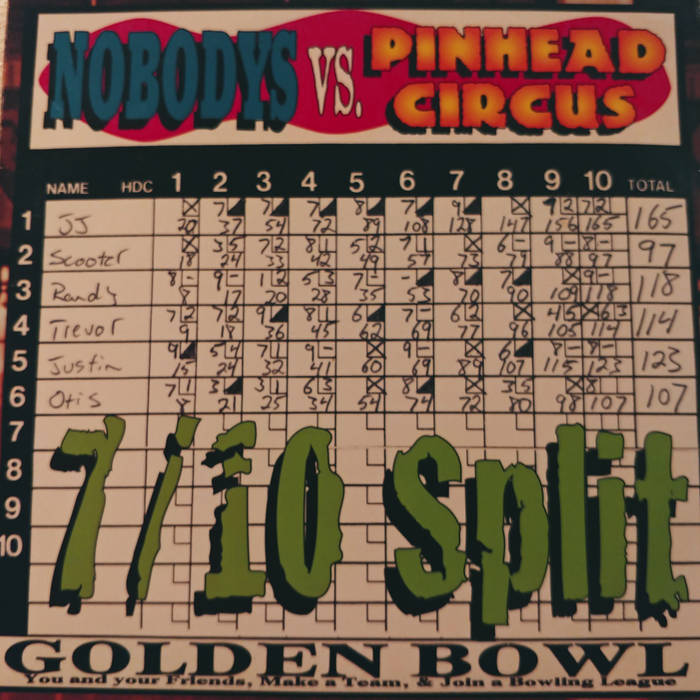 NOBODYS VS. PINHEAD CIRCUS
NAME HDC 1 2 3 4 5 6 7 8 9 10 TOTAL
1 JJ 20 37 54 72 89 108 128 147 156 165 165
2 Scooter 18 24 33 42 49 57 73 79 88 97 97
3 Randy 8 17 20 28 35 53 70 90 109 118 118
4 Trevor 9 18 36 45 62 69 77 96 105 114 114
5 Justin 15 24 32 41 60 69 89 107 115 123 123
6 Otis 8 21 25 34 54 74 72 80 98 107 107
7
8
9
10
7/10 Split
GOLDEN BOWL
You and your Friends, Make a Team, & Join a Bowling League